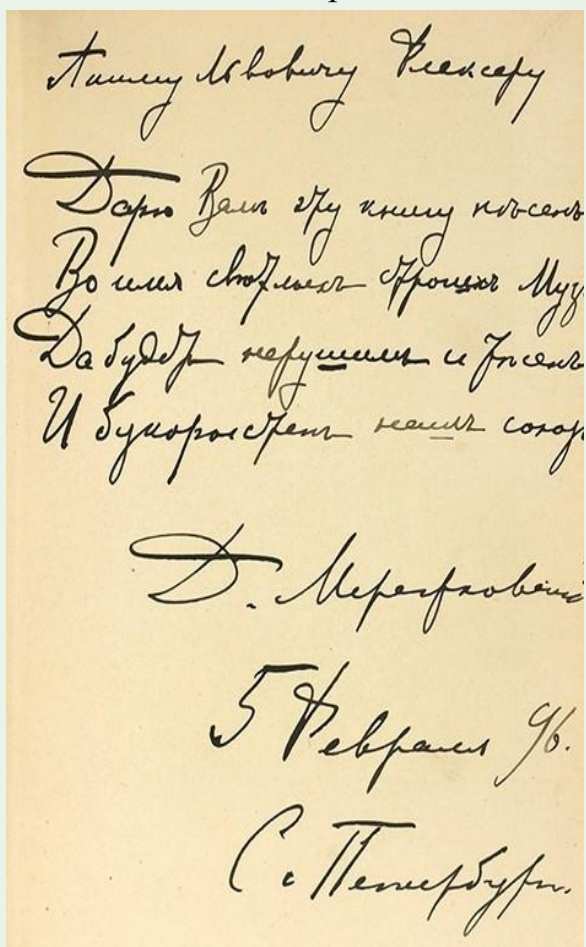 Акиму Львовичу Флексеру
Дарю Вамъ эту книгу пѣсенъ
Во имя свѣтлыхъ строгихъ Муз
Да будетъ нерушимъ и тѣсенъ
И безкорыстенъ нашъ союз
Д. Мережковскі
5 Февраля 96.
С. Петербург.